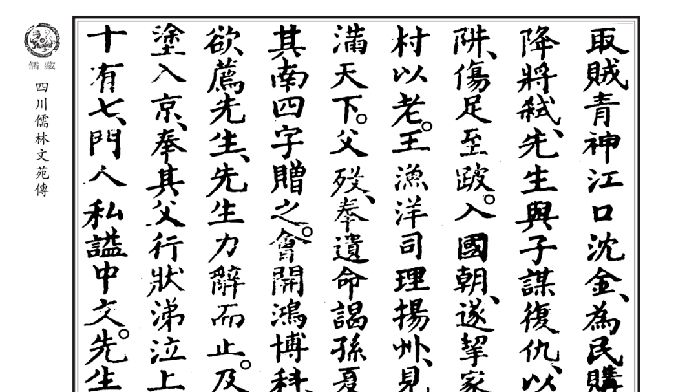 取賊青神江口沈金、為民購
降將弒、先生與子謀復仇、以
阱、傷足至跛。入國朝、遂挈家
村以老。王漁洋司理揚州、見
滿天下。父歿、奉遺命謁孫夏
其南四字贈之。會開鴻博科
欲薦先生、先生力辭而止。及
塗入京、奉其父行狀涕泣上
十有七、門人私謚中文。先生
儒藏
四川儒林文苑傳